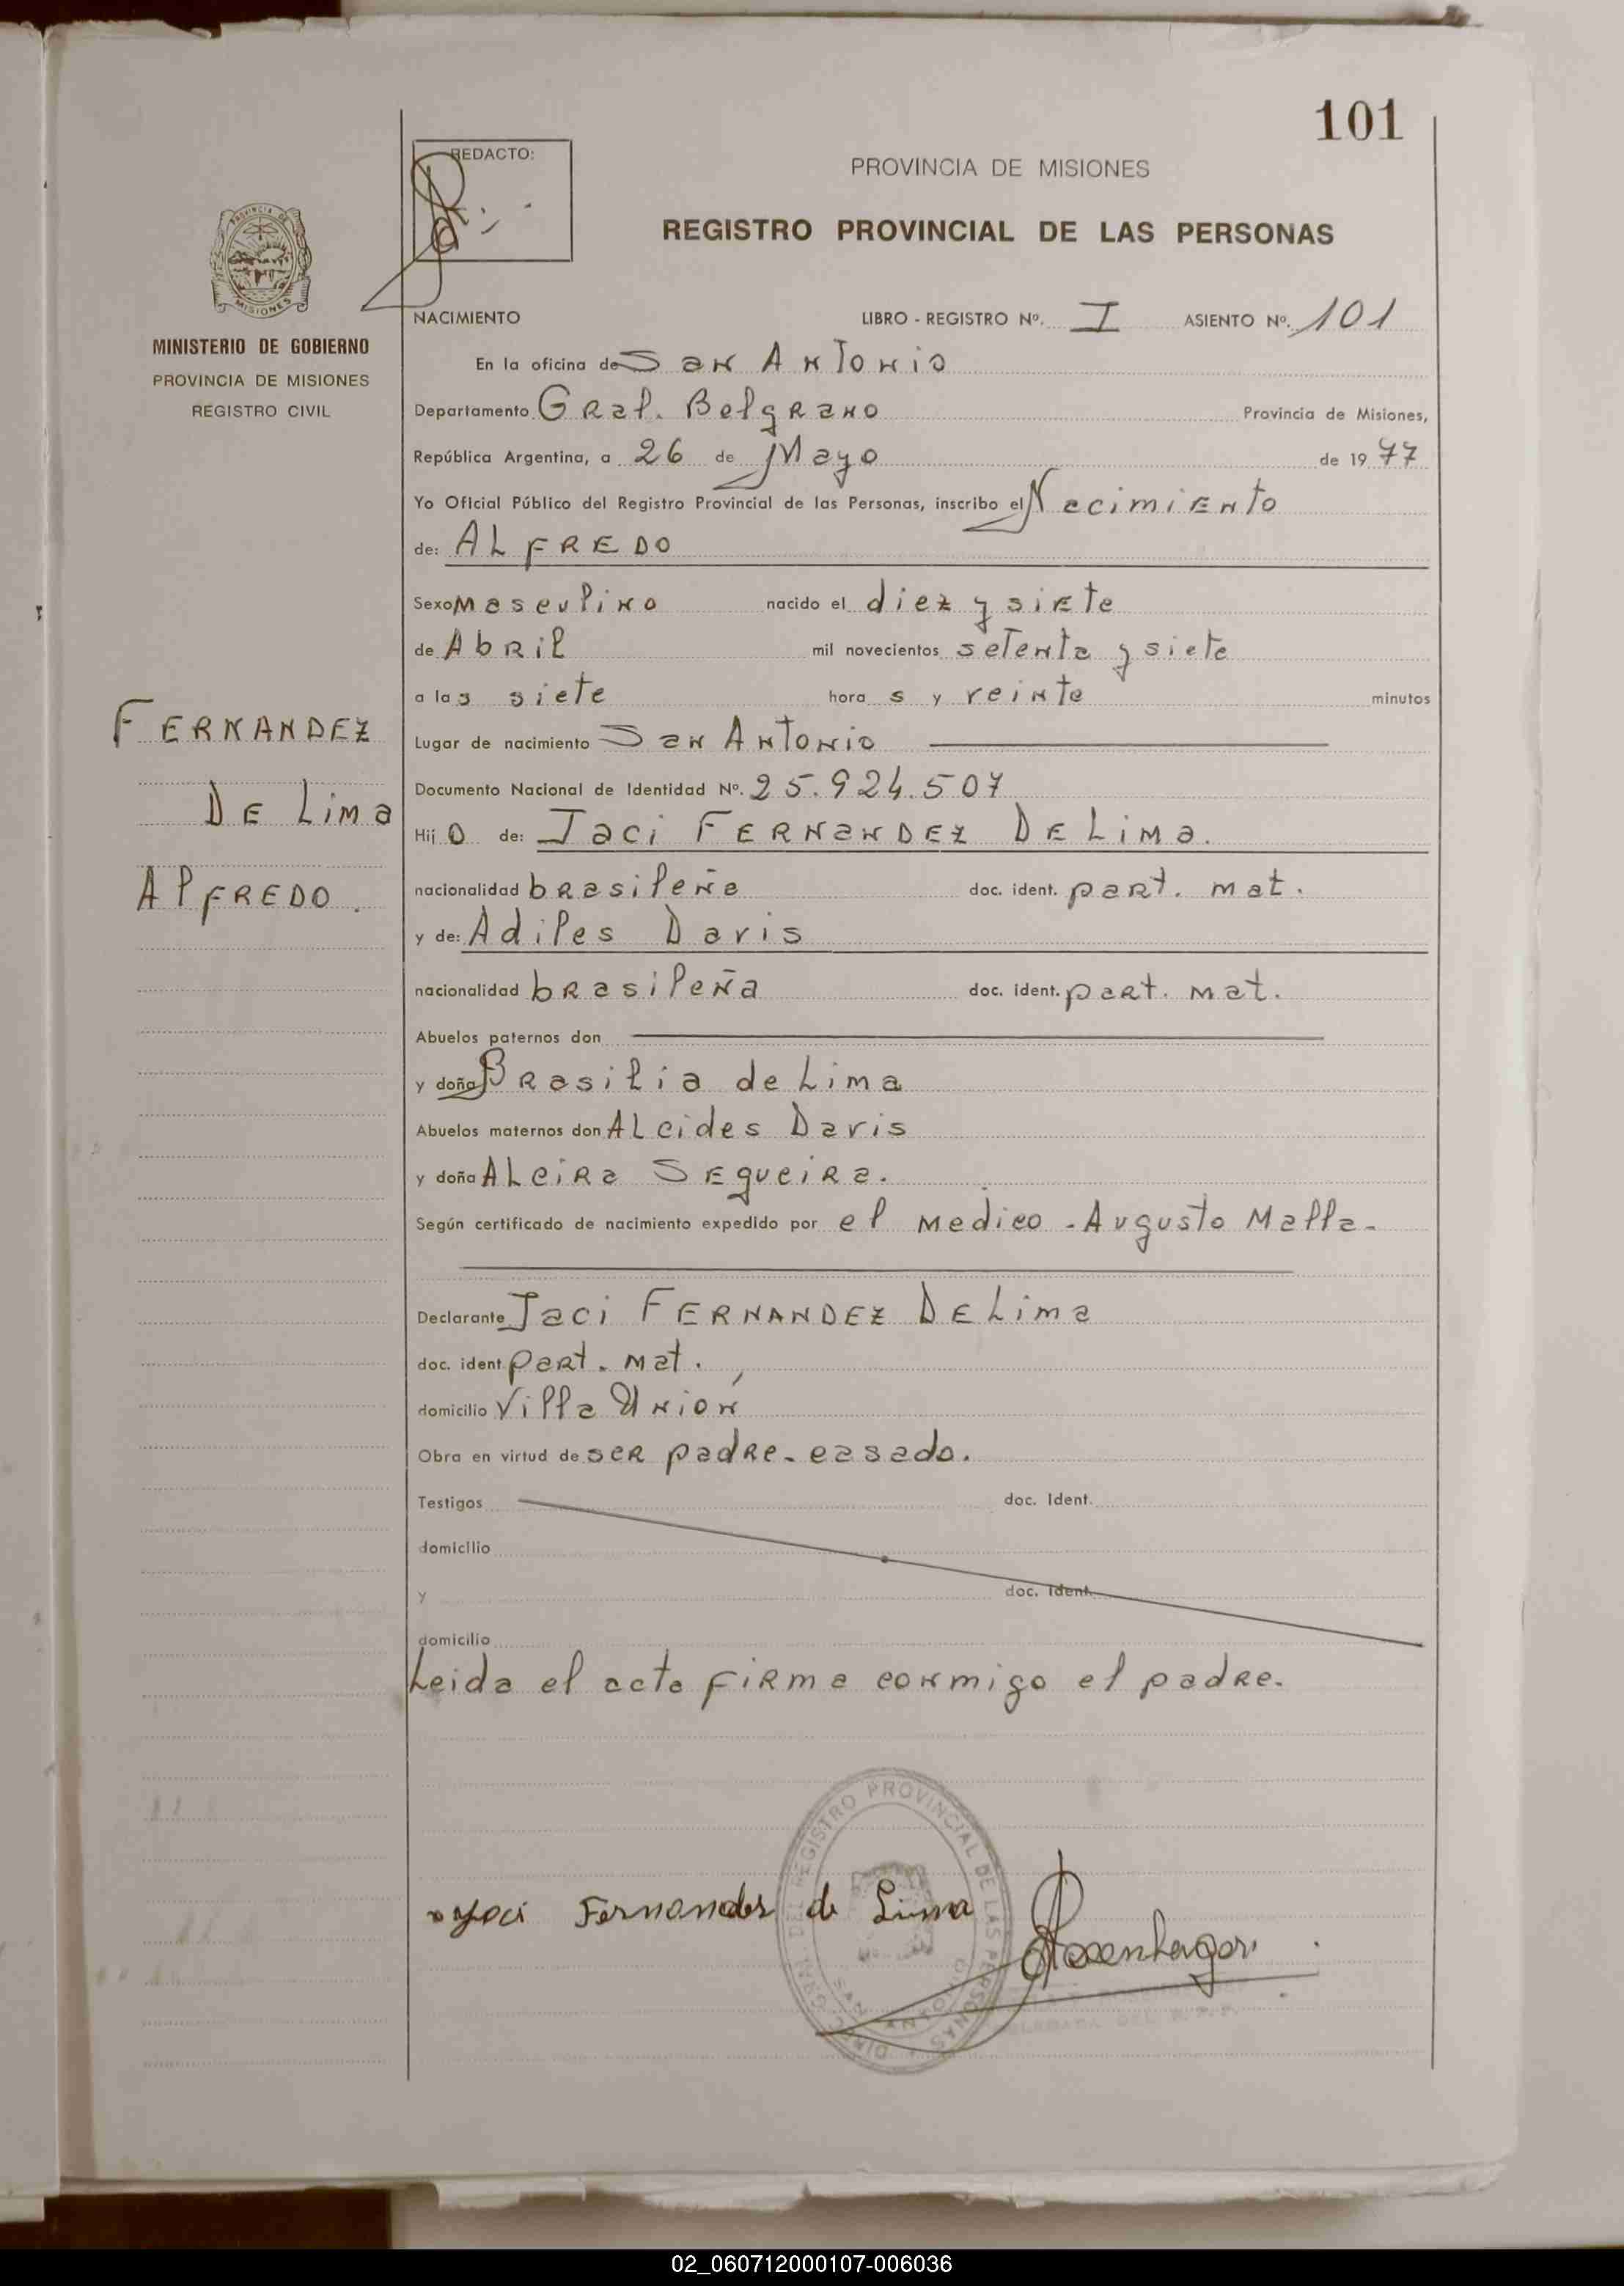 101
REDACTO:
PROVINCIA DE MISIONES
REGISTRO PROVINCIAL DE LAS PERSONAS
PROVINCIA DE
MISIONES
MINISTERIO DE GOBIERNO
PROVINCIA DE MISIONES
REGISTRO CIVIL
NACIMIENTO LIBRO - REGISTRO Nº. I ASIENTO Nº. 101
En la oficina de San Antonio
Departamento Gral. Belgrano Provincia de Misiones,
República Argentina, a 26 de Mayo de 1977
Yo Oficial Público del Registro Provincial de las Personas, inscribo el Nacimiento
de: ALFREDO
Sexo Masculino nacido el diez y siete
de Abril mil novecientos setenta y siete
a las siete hora s y veinte minutos
FERNANDEZ
DE Lima
AlFREDO.
Lugar de nacimiento San Antonio
Documento Nacional de Identidad Nº. 25.924.507
Hij o de: Jaci FERNANDEZ DE Lima.
nacionalidad brasileña doc. ident. part. mat.
y de: Adiles Davis
nacionalidad brasileña doc. ident. part. mat.
Abuelos paternos don
y doña Brasilia de Lima
Abuelos maternos don Alcides Davis
y doña Alcira Segueira.
Según certificado de nacimiento expedido por el Medico - Augusto Malla -
Declarante Jaci FERNANDEZ DE Lima
doc. ident. part. mat.
domicilio Villa Unión
Obra en virtud de ser padre - casado.
Testigos doc. Ident.
domicilio
y doc. Ident.
domicilio
Leida el acta firma conmigo el padre.
Fernandes de Lima
DIREC. GRAL. DEL REGISTRO PROVINCIAL DE LAS PERSONAS
SAN ANTONIO
DEL R. P. P.
02_060712000107-006036